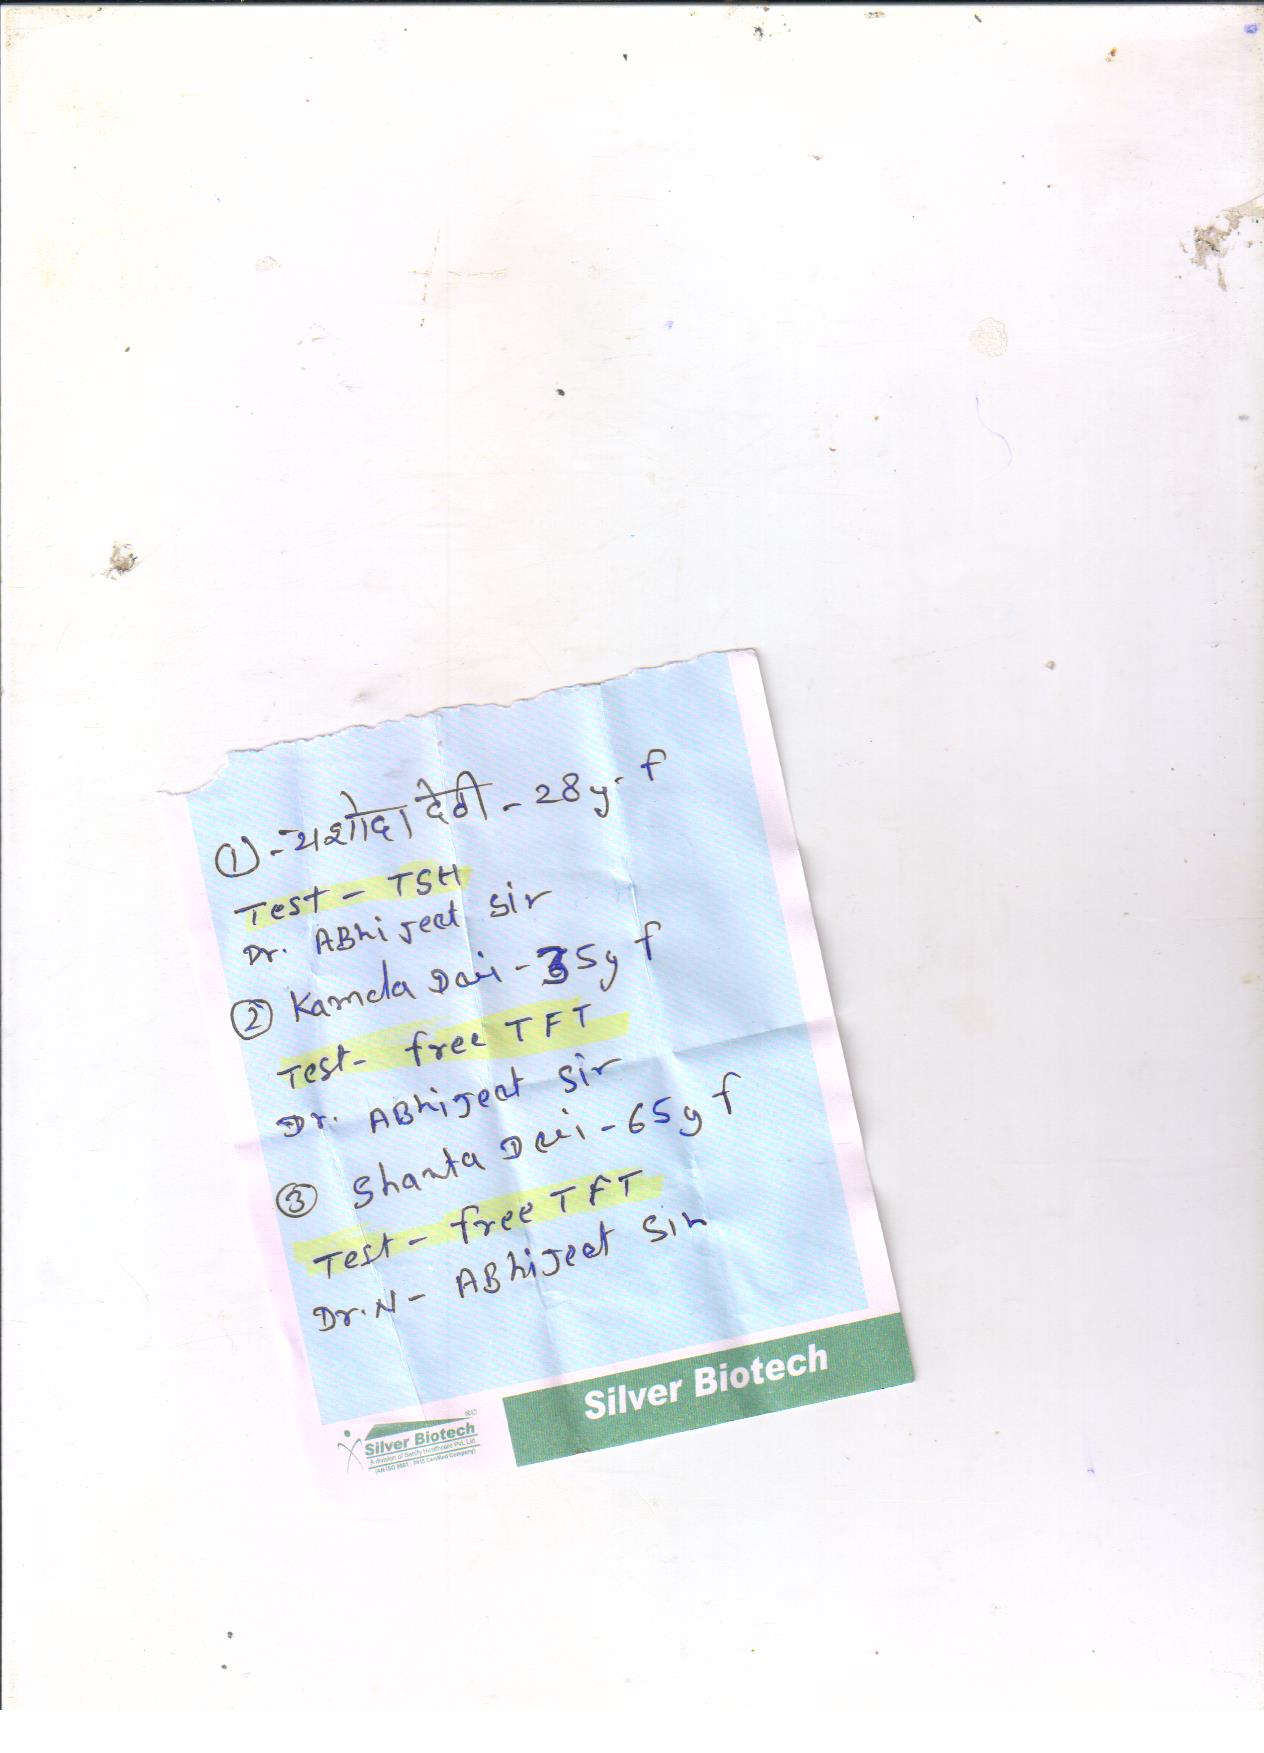 ① - यशोदा देवी - 28y. f
Test - TSH
Dr. ABhiJeet Sir
② Kamla Devi - 35y f
Test - free TFT
Dr. ABhiJeet Sir
③ Shanta Devi - 65y f
Test - free TFT
Dr. N - ABhiJeet Sir
Silver Biotech
Silver Biotech
A division of Sanify Healthcare Pvt. Ltd.
(AN ISO 9001 : 2015 Certified Company)